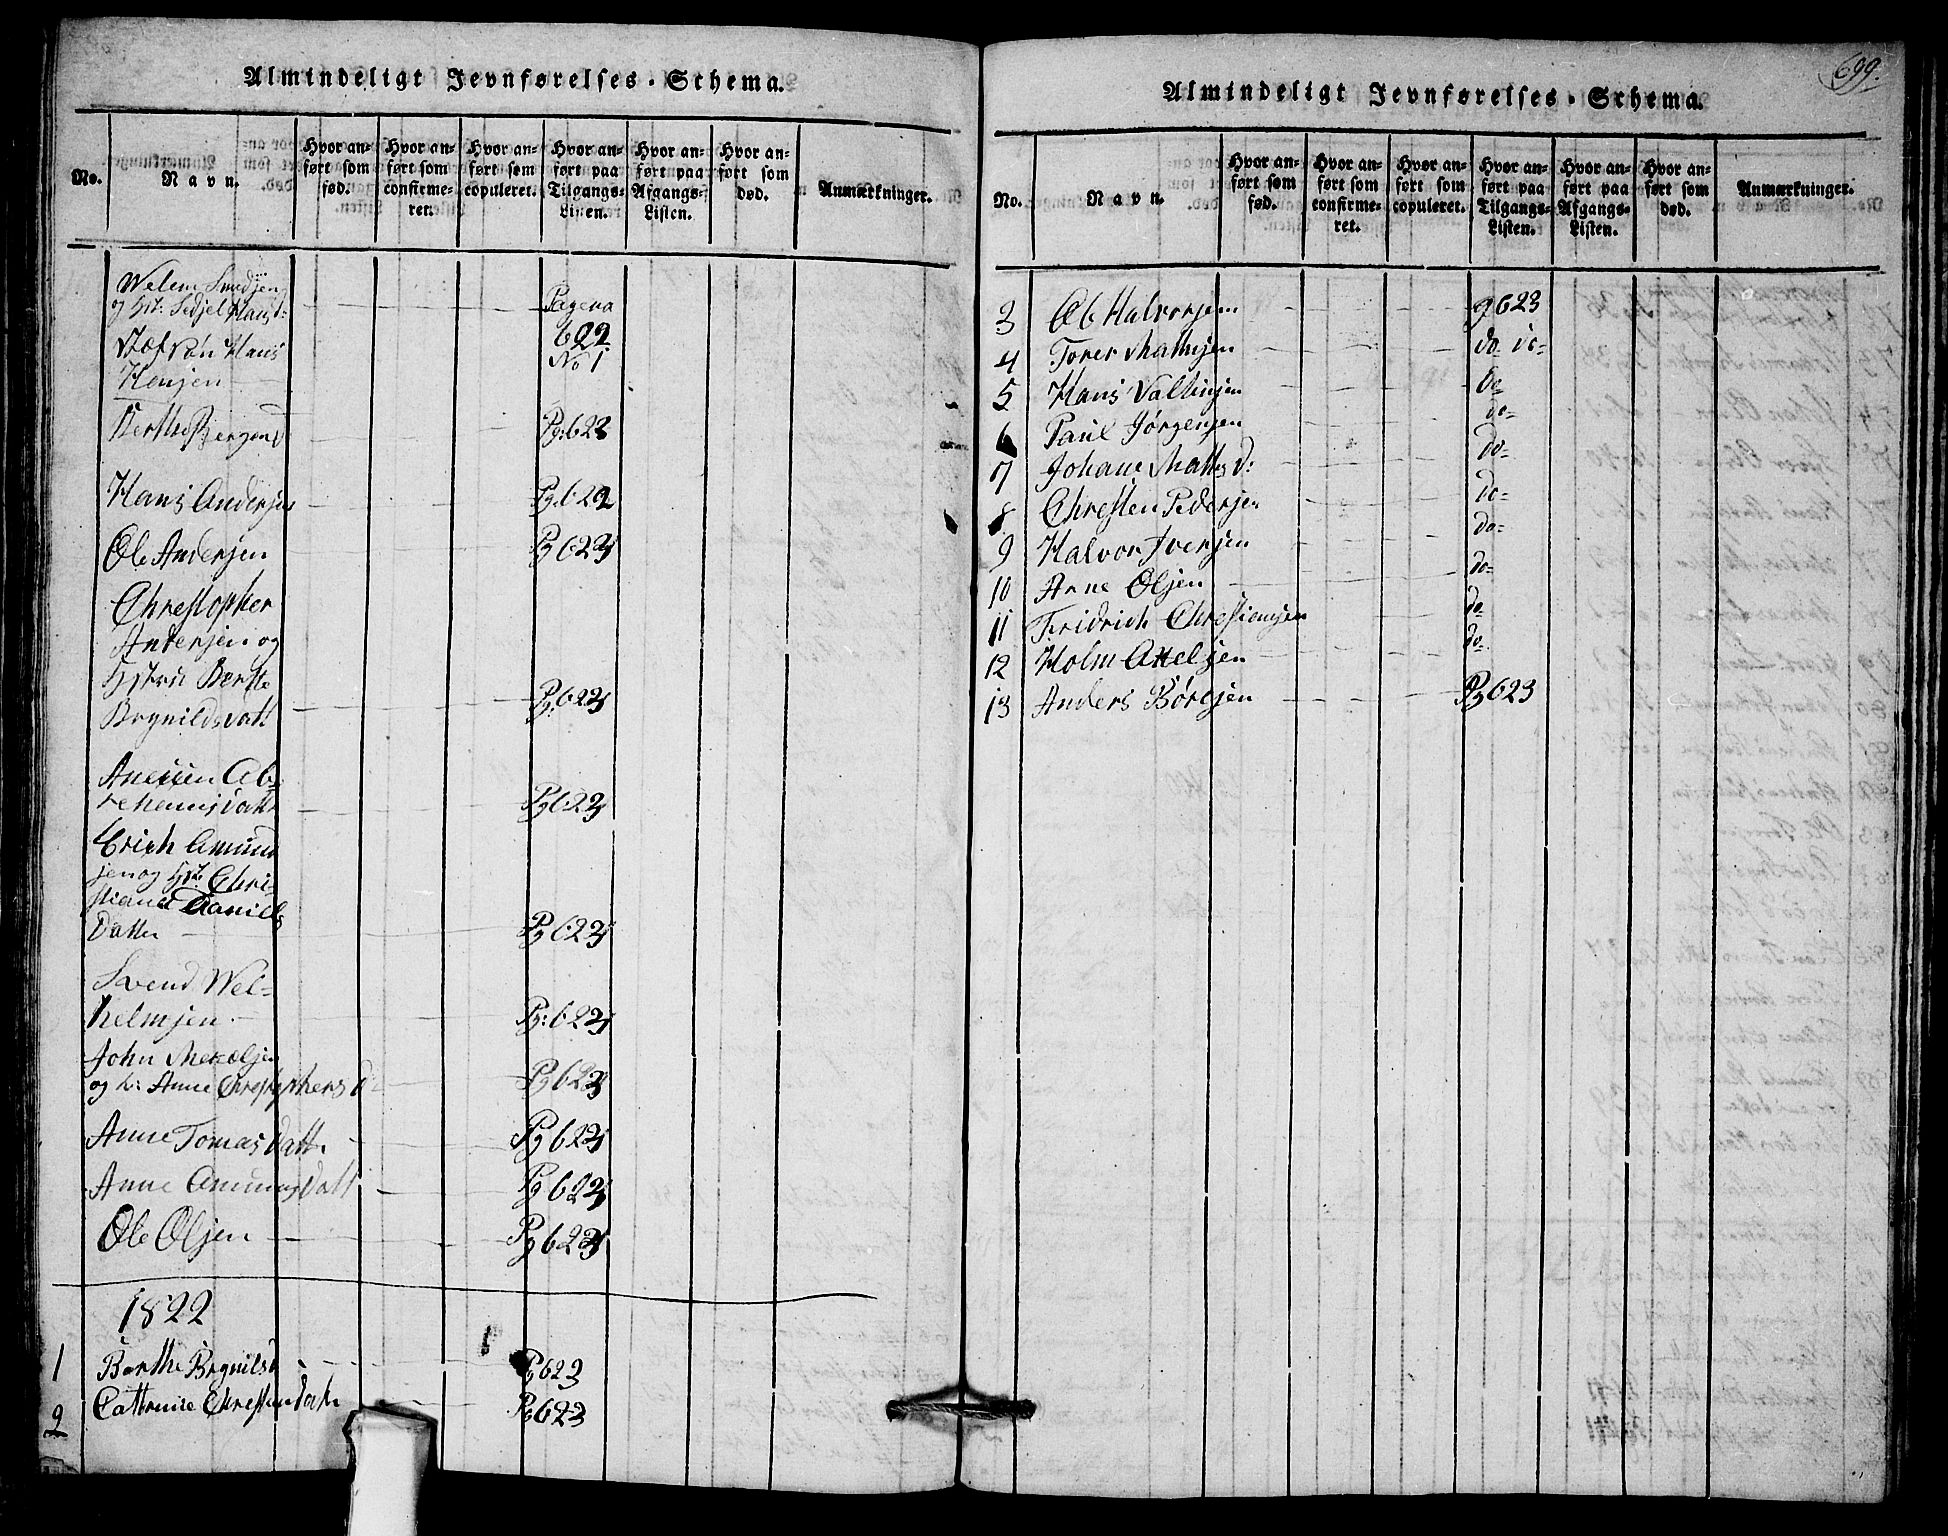 Almindeligt Jevnførelses-Schema.
No.
Navn.
Hvor an-
ført som
fød.
Hvor an-
ført som
confirme-
ret.
Hvor an-
ført som
copuleret.
Hvor an-
ført paa
Tilgangs-
Listen.
Hvor an-
ført paa
Afgangs-
Listen.
Hvor an-
ført som
død.
Anmærkninger.
og
Pagena
622
No 1
Hans
Hansen
Berthe Bergend
Pg: 623
Hans Andersen
Pg 622
Ole Andersen
Pg 623
Christopher
Andersen og
Berthe
Brynildsdatt
Pg 623
Pg 623
Erich Amund
sen og Hst. Chri-
stiana Daniels
Datter
Pg 623
Svend Wel-
helmsen
Pg: 623
John
og h: Anne Chrestophers d
Pg 623
Anne Tomasdatt
Pg 623
Anne Amundsdatt
Pg 623
Ole Olsen
Pg 623
1822
1 Berthe Brynilsd Pg 623
2 Cathrine Chrestendatt Pg 623
699.
Almindeligt Jevnførelses-Schema.
No.
Navn.
Hvor an-
ført som
fød.
Hvor an-
ført som
confirme-
ret.
Hvor an-
ført som
copuleret.
Hvor an-
ført paa
Tilgangs-
Listen.
Hvor an-
ført paa
Afgangs-
Listen.
Hvor an-
ført som
død.
Anmærkninger.
3 Ole Halvorsen 9623
4 Torer Mathisen do do
5 Hans do
6 Paul Jørgensen do
7 Johane Mathisd: do
8 Chresten Pedersen do
9 Halvor Iversen do
10 Arne Olsen do
11 Fridrich Chrestiansen do
12 Holm Axelsen do
13 Anders Børesen Pg 623